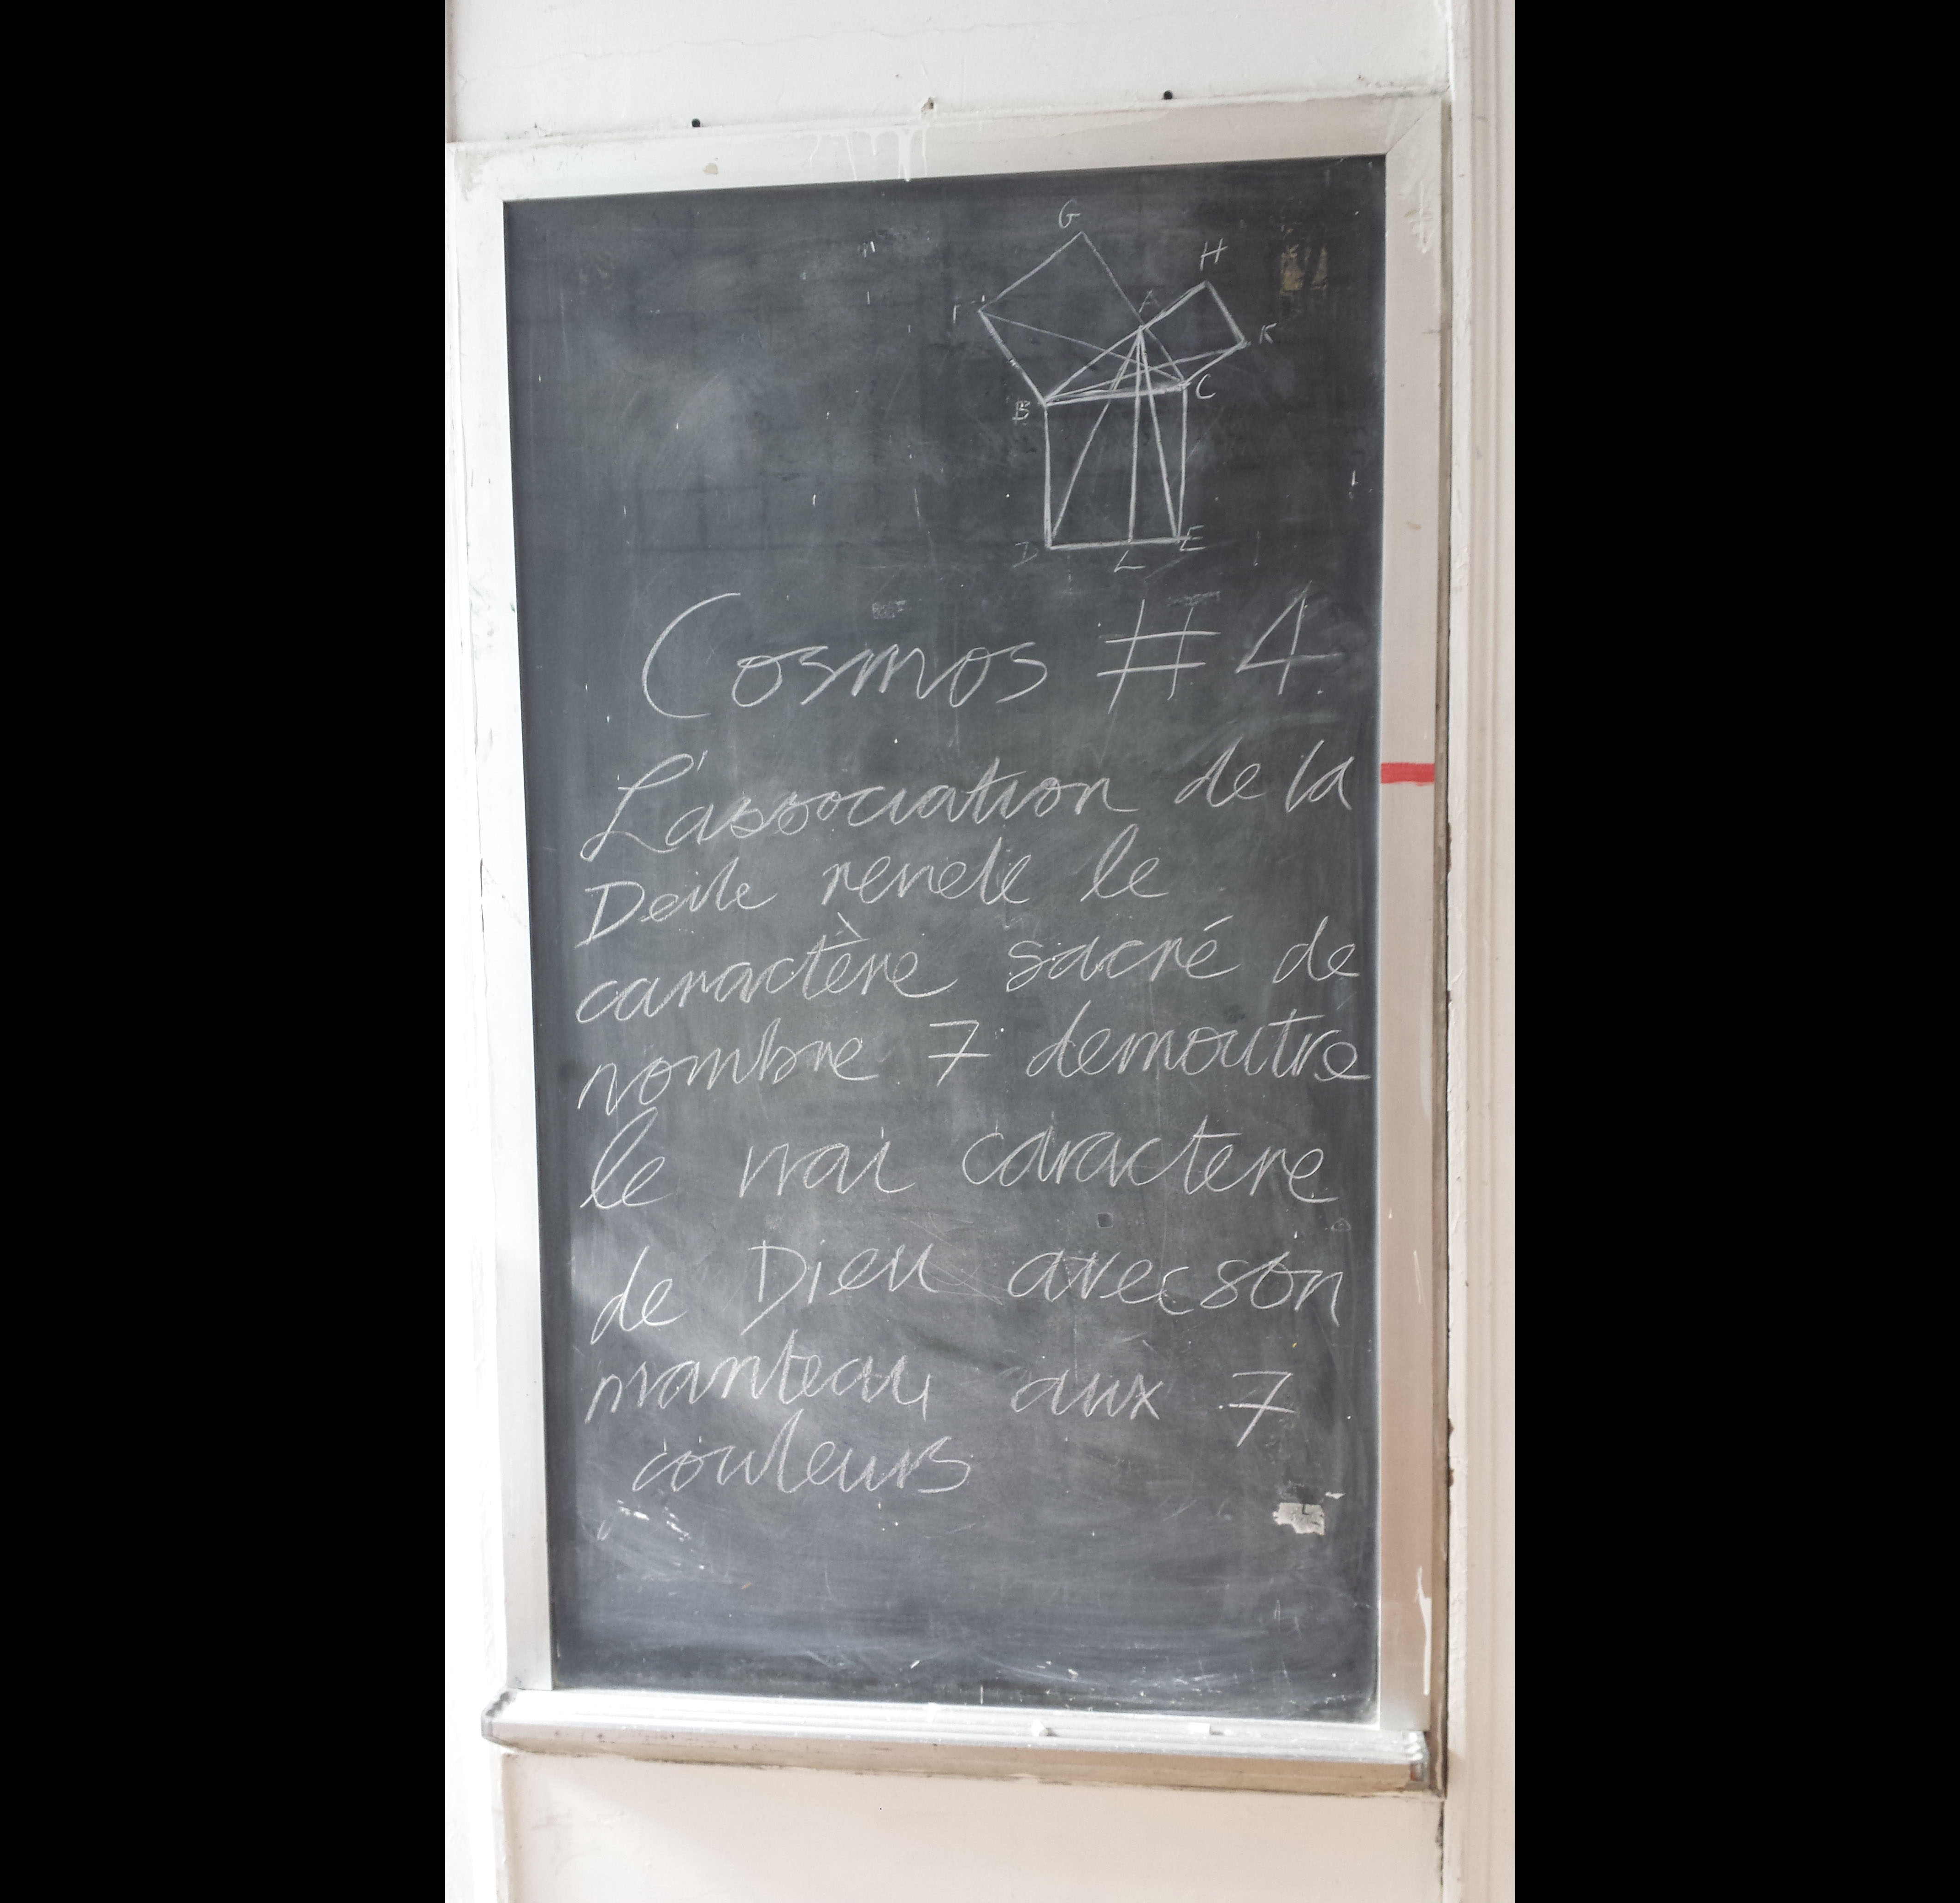 G
H
F
A
K
C
B
D
E
L
Cosmos # 4
L'association de la
Deite revele le
caractère sacré de
nombre 7 demoutre
le vrai caractere
de Dieu avec son
manteau aux 7
couleurs